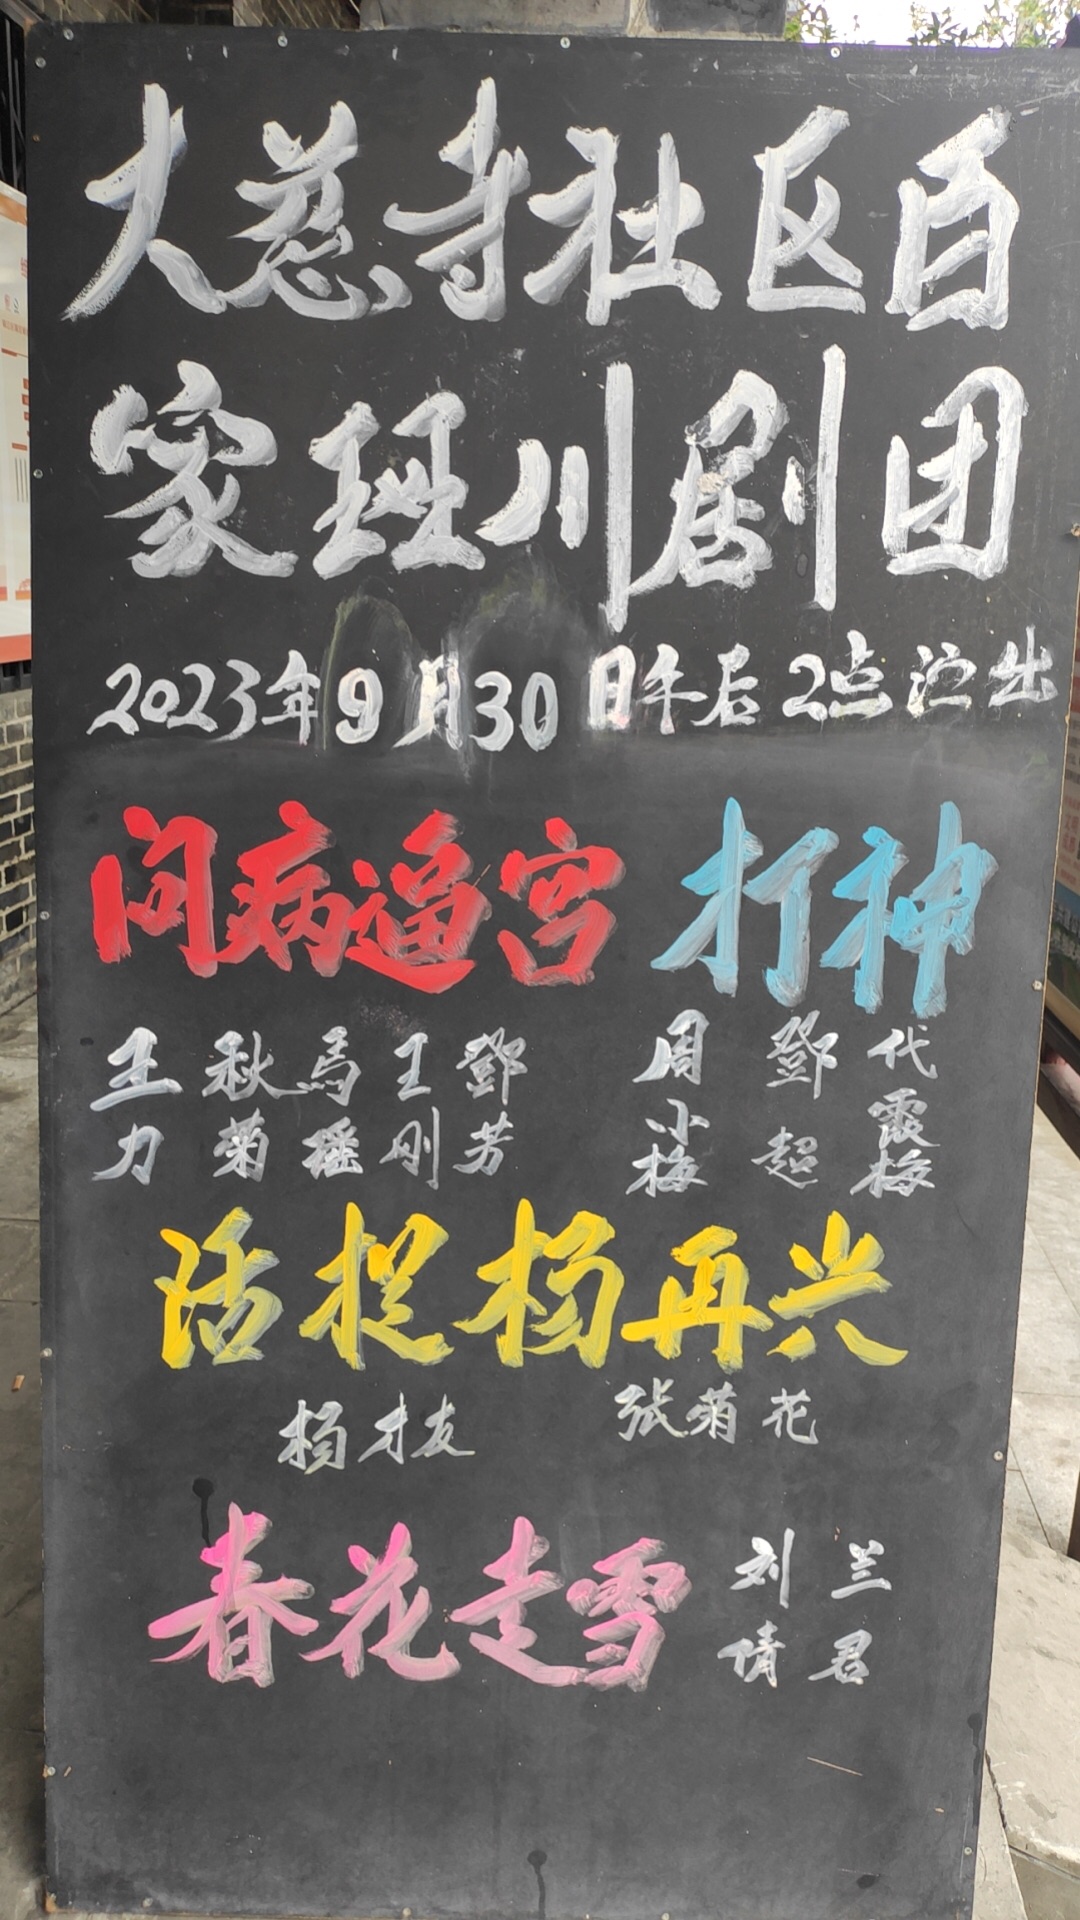 大慈寺社区百
家班川剧团
2023年9月30日午后2点演出
问病逼宫 打神
王力 秋菊 马瑶 王刚 鄧芳 周小梅 鄧超 代霞梅
活捉杨再兴
杨才友 张菊花
春花走雪 刘倩 兰君